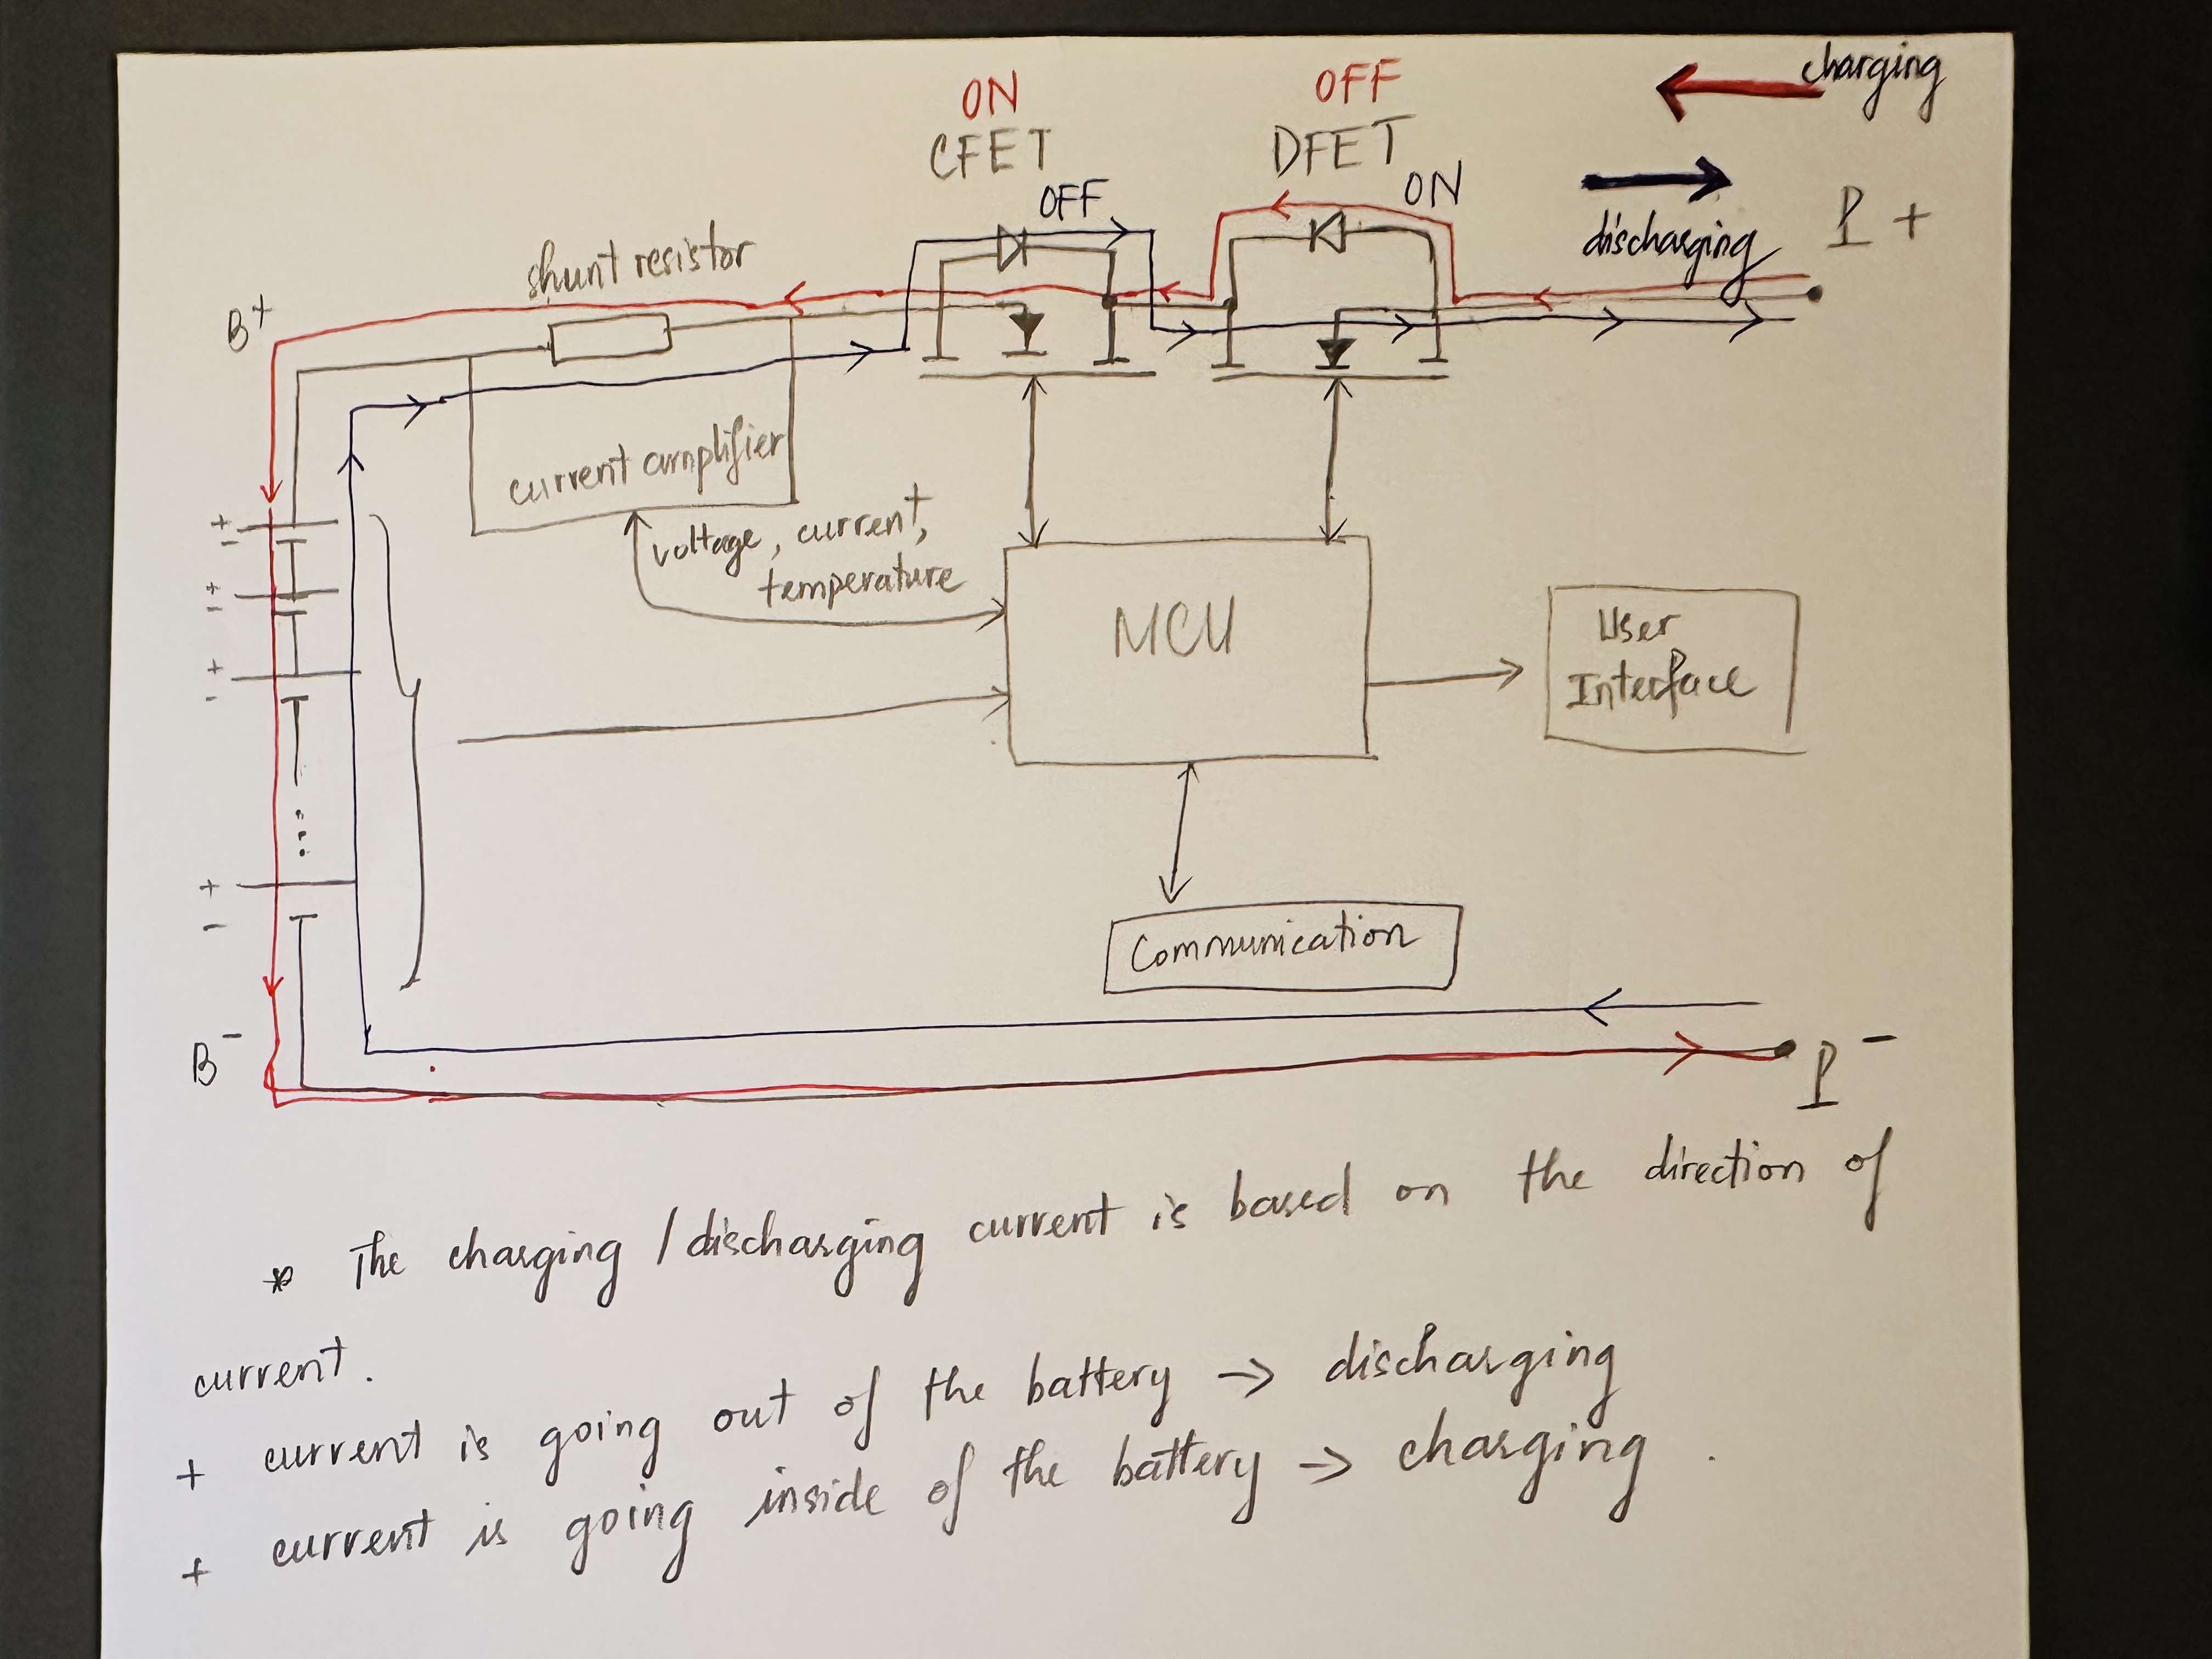 charging
ON
OFF
CFET
DFET
OFF
ON
discharging
P +
shunt resistor
B+
current amplifier
voltage, current,
temperature
MCU
User
Interface
+
-
+
-
+
-
+
-
Communication
B-
P-
* The charging / discharging current is based on the direction of
current.
+ current is going out of the battery → discharging
+ current is going inside of the battery → charging .